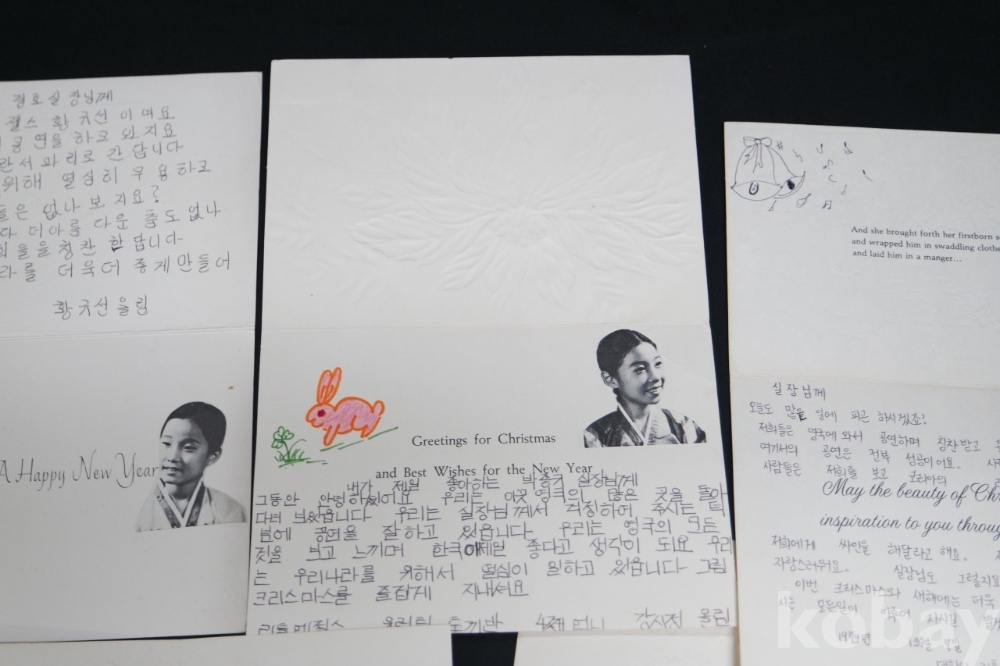 정호실장님께
젤스 황규선 이예요
공연을 하고 와지요
란서 파리로 간답니다
위해 열심히 무용하고
들은 없나 보지요?
다 더아름 다운 춤도 없나
희들을 칭찬 한답니다
라를 더욱더 좋게만들어
황규선 올림
A Happy New Year
Greetings for Christmas
and Best Wishes for the New Year
내가 제일 좋아하는 박 실장님께
그동안 안령하셨어요 우리는 영국의 많은 곳을 돌아
다녀 보았읍니다 우리는 실장님께서 걱정하여 주시는 덕
분에 공연을 잘하고 있읍니다 우리는 영국의 모든
것을 보고 느끼며 한국이제일 좋다고 생각이 되요 우리
는 우리나라를 위해서 열심이 일하고 있읍니다 그럼
크리스마스를 즐겁게 지내셔요
리틀엔젤스 토끼반 언니 올림
And she brought forth her firstborn s
and wrapped him in swaddling clothe
and laid him in a manger...
실장님께
오늘도 많을 일에 피곤 하시겠죠?
저희들은 영국에 와서 공연하며 칭찬받고
여기서의 공연은 전부 성공이어요.
사람들은 저희를 보고 코리아의
May the beauty of Ch
inspiration to you throug
저희에게 싸인을 해달라고 해요.
자랑스러워요. 실장님도 그렇지요
이번 크리스마스와 새해에는 더욱
시는 모든일이 이루어 지시길
kobay